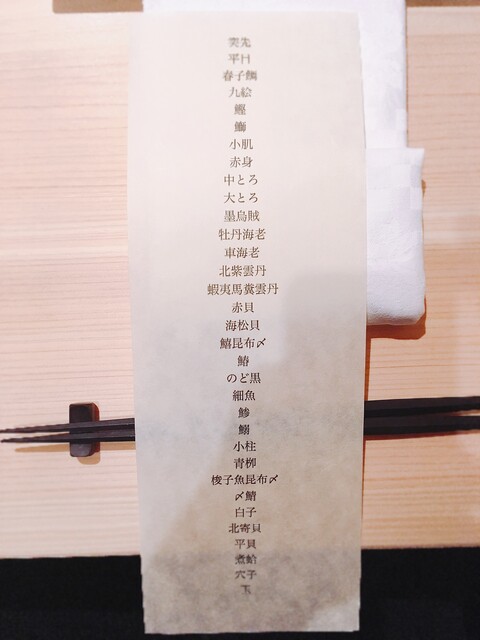 突先
平目
春子鯛
九絵
鰹
鰤
小肌
赤身
中とろ
大とろ
墨烏賊
牡丹海老
車海老
北紫雲丹
蝦夷馬糞雲丹
赤貝
海松貝
鱚昆布〆
鰆
のど黒
細魚
鯵
鰯
小柱
青柳
梭子魚昆布〆
〆鯖
白子
北寄貝
平貝
煮蛤
穴子
玉